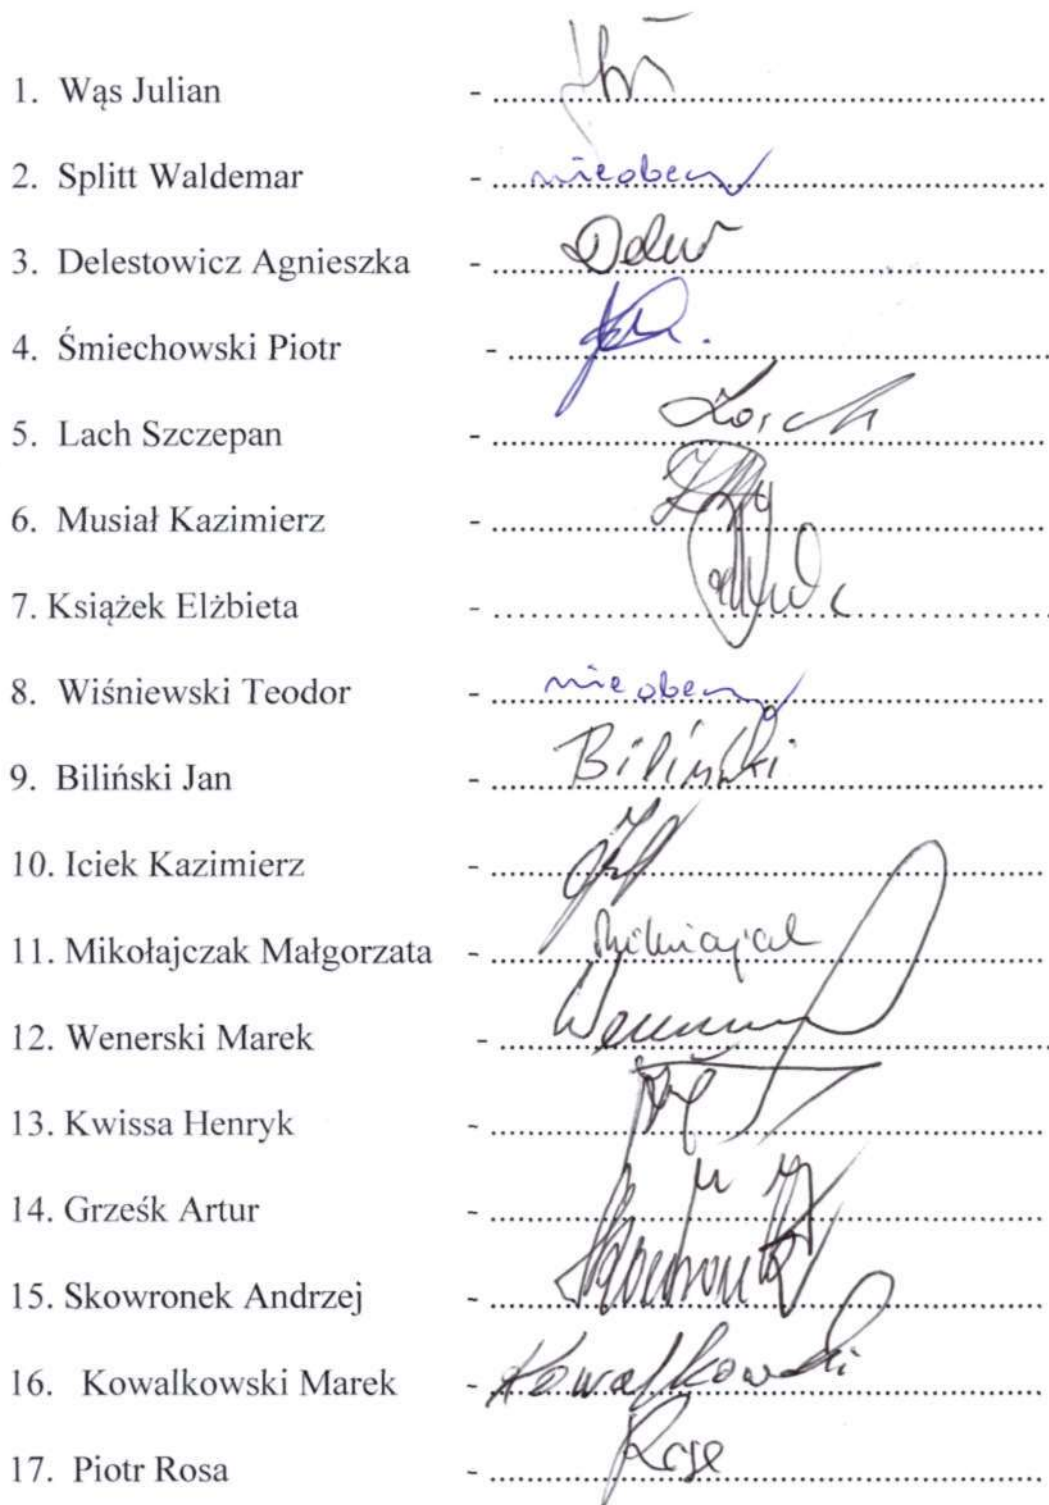 1. Wąs Julian - ........................
2. Splitt Waldemar - nieobecny
3. Delestowicz Agnieszka - ........................
4. Śmiechowski Piotr - ........................
5. Lach Szczepan - ........................
6. Musiał Kazimierz - ........................
7. Książek Elżbieta - ........................
8. Wiśniewski Teodor - nieobecny
9. Biliński Jan - Biliński
10. Iciek Kazimierz - ........................
11. Mikołajczak Małgorzata - ........................
12. Wenerski Marek - ........................
13. Kwissa Henryk - ........................
14. Grześk Artur - ........................
15. Skowronek Andrzej - Skowronek
16. Kowalkowski Marek - Kowalkowski
17. Piotr Rosa - Rosa